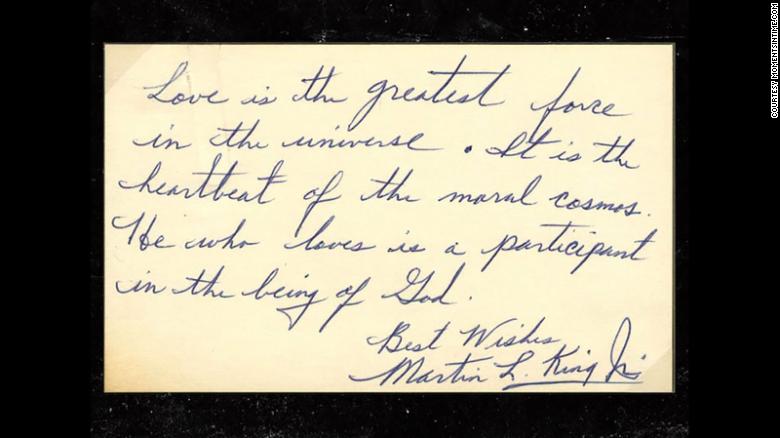 Love is the greatest force
in the universe. It is the
heartbeat of the moral cosmos.
He who loves is a participant
in the being of God.
Best Wishes
Martin L. King Jr.
COURTESY MOMENTSINTIME.COM